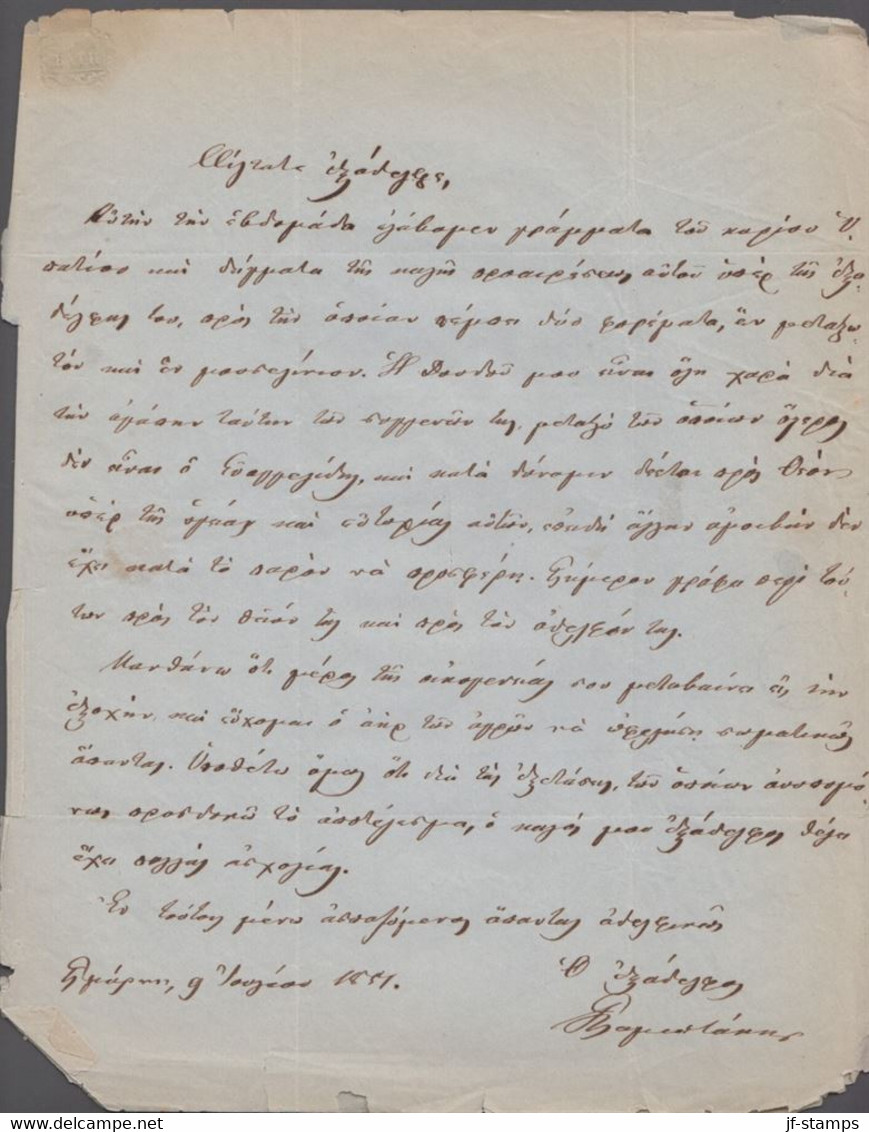 Φίλτατε ἐξάδελφε,
Αὐτὴν τὴν ἑβδομάδα ἐλάβομεν γράμματα τοῦ κυρίου Ὑ-
πατίου καὶ δείγματα τῆς καλῆς προαιρέσεως αὐτοῦ ὑπὲρ τῆς ἐξα-
δέλφης του, πρὸς τὴν ὁποίαν πέμπει δύο φορέματα, ἓν μεταξω-
τὸν καὶ ἓν μουσελίνιον. Ἡ μου εἶναι ὅλη χαρὰ διὰ
τὴν ἀγάπην ταύτην τῶν συγγενῶν της, μεταξὺ τῶν ὁποίων
δὲν εἶναι ὁ Εὐαγγελίδης, καὶ κατὰ δύναμιν δέεται πρὸς Θεὸν
ὑπὲρ τῆς ὑγείας καὶ εὐτυχίας αὐτῶν, ἐπειδὴ ἄλλην ἀμοιβὴν δὲν
ἔχει κατὰ τὸ παρὸν νὰ προσφέρῃ. Σήμερον γράφει περὶ τού-
των πρὸς τὸν θεῖόν της καὶ πρὸς τὸν ἀδελφόν της.
Μανθάνω ὅτι μέρος τῆς οἰκογενείας σου μεταβαίνει εἰς τὴν
ἐξοχὴν, καὶ εὔχομαι ὁ ἀὴρ τῶν ἀγρῶν νὰ ὠφελήσῃ σωματικῶς
ἅπαντας. Ὑποθέτω ὅμως ὅτι διὰ τὰς ἐξετάσεις, τῶν ὁποίων ἀνυπομό-
νως προσδοκῶ τὸ ἀποτέλεσμα, ὁ καλός μου ἐξάδελφος θέλει
ἔχει πολλὰς ἀσχολίας.
Ἐν τούτοις μένω ἀσπαζόμενος ἅπαντας ἀδελφικῶς
Σμύρνη, 9 Ἰουλίου 1851.
Ὁ ἐξάδελφος